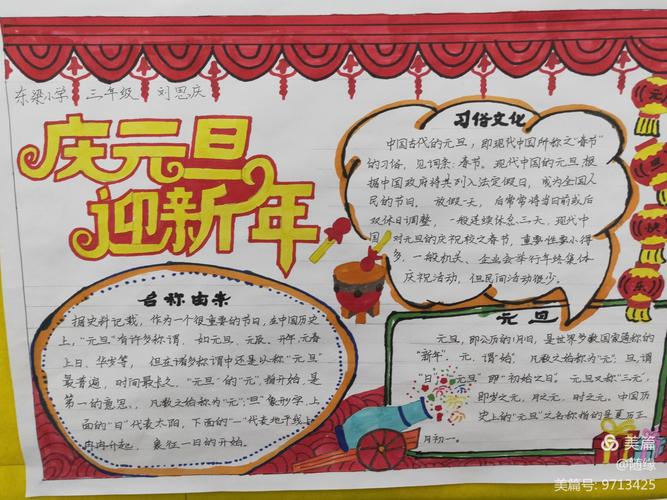 东梁小学 三年级 刘思庆
庆元旦
迎新年
习俗文化
中国古代的元旦，即现代中国所称之“春节”
的习俗，见词条：春节。现代中国的元旦，根
据中国政府将其列入法定假日，成为全国人
民的节日。放假一天，后常常将当日前或后
双休日调整，一般连续休息三天，现代中
国对元旦的庆祝较之春节，重要性要小得
多，一般机关、企业会举行年终集体
庆祝活动，但民间活动很少。
元
快
乐
名称由来
据史料记载，作为一个很重要的节日，在中国历史
上，“元旦”有许多称谓，如元旦、元辰、开年、元春
上日、华岁等，但在诸多称谓中还是以称“元旦”
最普遍，时间最长久。“元旦”的“元”，指开始，是
第一的意思，凡数之始称为“元”，“旦”象形字，上
面的“日”代表太阳，下面的“一”代表地平线上
冉冉升起，象征一日的开始。
元旦
元旦，即公历的1月1日，是世界多数国家通称的
“新年”。元，谓“始”，凡数之始称为“元”；旦，谓
“日”；“元旦”即“初始之日”。元旦又称“三元”，
即岁之元，月之元，时之元。中国历
史上的“元旦”之名称指的是夏历正
月初一。
美篇
@随缘
美篇号: 9713425